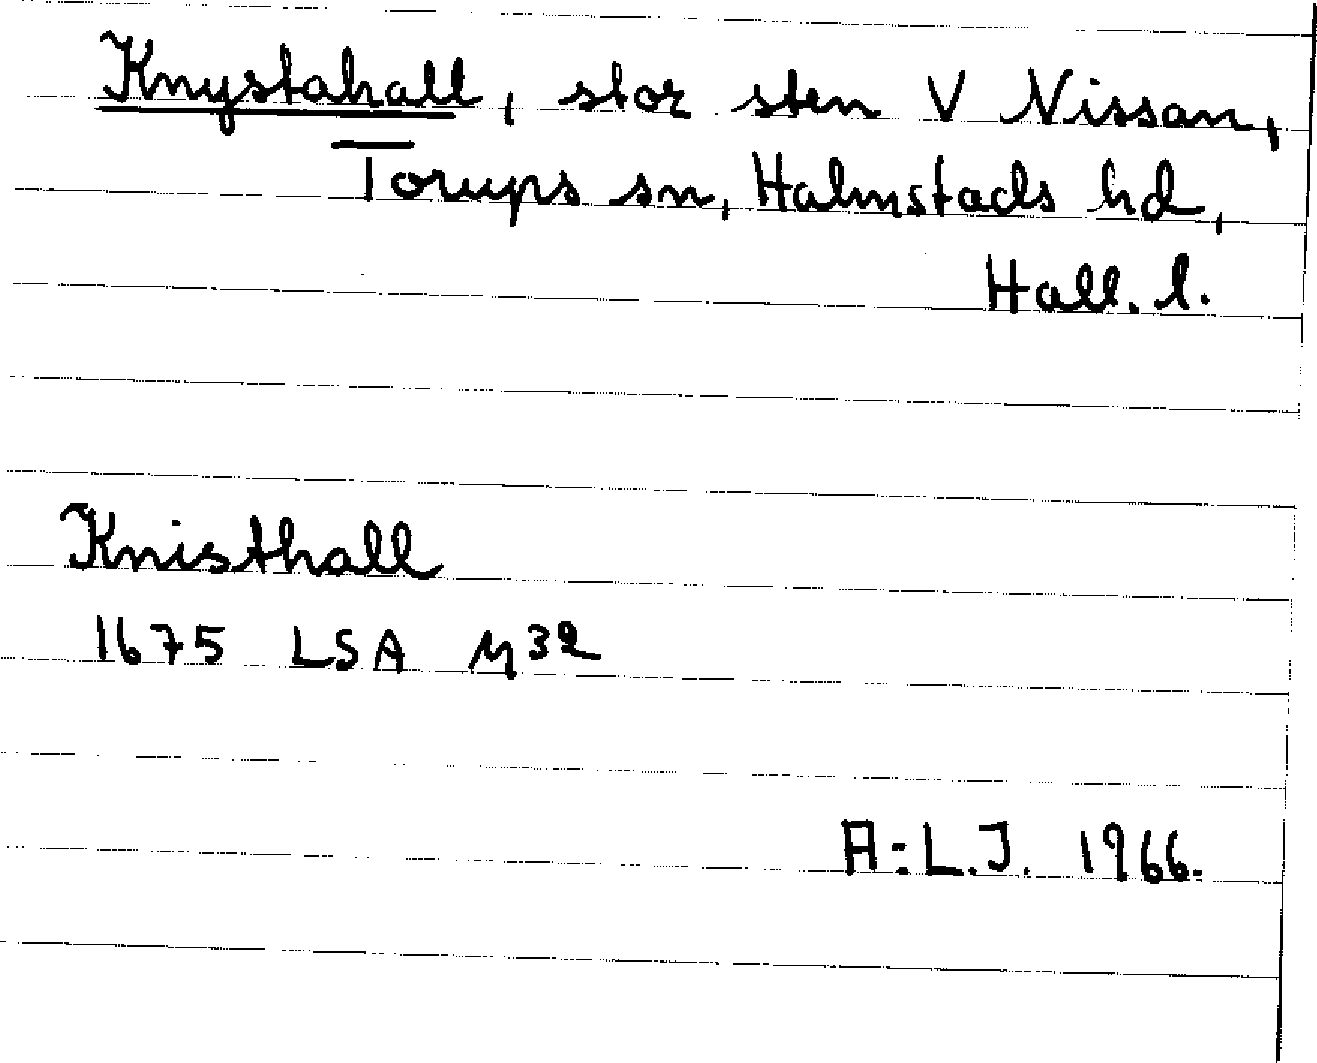 Knystahall, stor sten V Nissan,
Torups sn, Halmstads hd,
Hall. l.
Knisthall
1675 LSA M32
A:L.J. 1966.